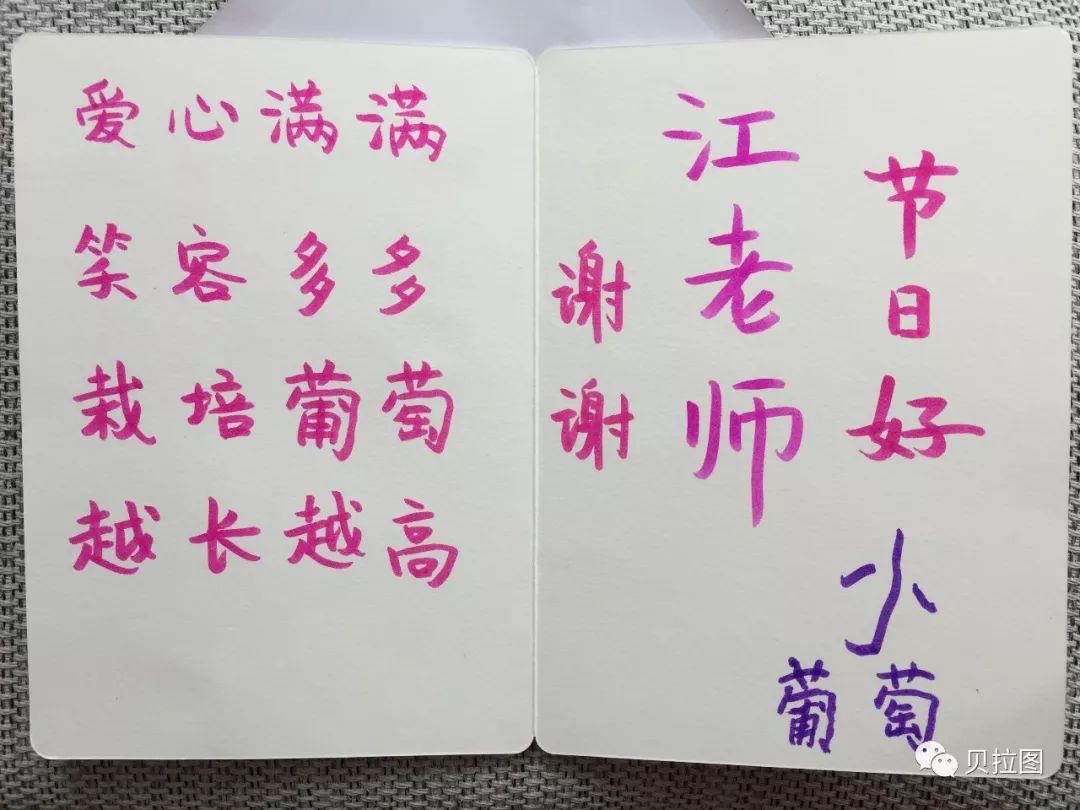 爱心满满
笑容多多
栽培葡萄
越长越高
谢谢
江老师
节日好
小
葡萄
贝拉图